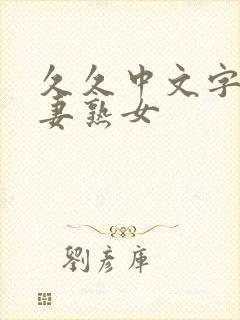 久久中文字
妻熟女
劉彥庫